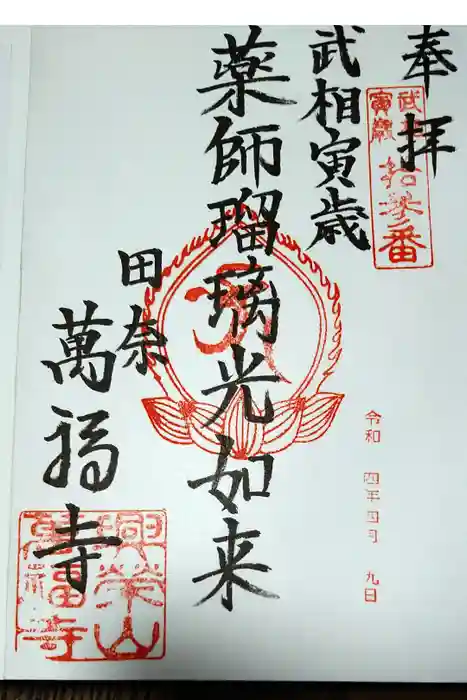 奉拝
武相
寅歳
拾参番
武相寅歳
薬師瑠璃光如来
令和 四年四月 九日
田奈
萬福寺
興栄山
萬福寺